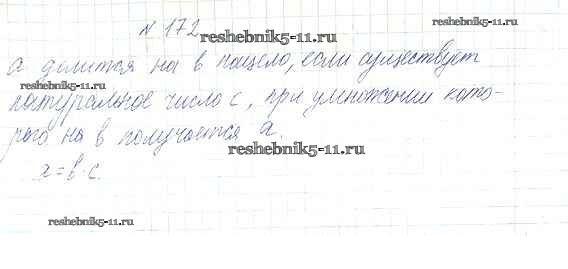 N 172
reshebnik5-11.ru
reshebnik5-11.ru
а делится на в нацело, если существует
reshebnik5-11.ru
натуральное число с, при умножении кото-
рого на в получается а.
reshebnik5-11.ru
а=в·с.
reshebnik5-11.ru